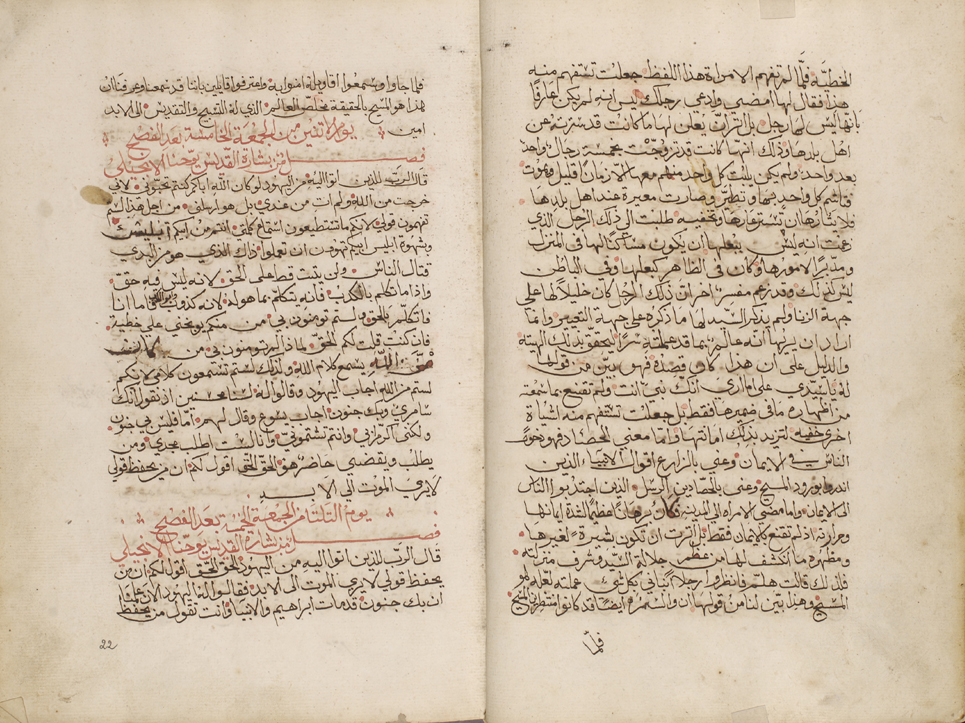 الخطيّة فلمّا لم تفهم الامراة هذا اللفظ جعلت تستفهم منه
هذا فقال لها امضي وادعي رجلك ليس انه لم يكن عارفًا
بانها ليس لها رجل بل اثر ان يعلن لها ما كانت قد سترته عن
اهل بلدها وذلك انها كانت قد تزوجت بخمسة رجال واحد
بعد واحد ولم يكن يثبت كل واحد منهم معها الا زمان قليل ويموت
كل واحد وصارت معيرة عند اهل بلدها
طلبت الى ذلك الرجل الذي
زعمت انه ليس ببعلها ان يكون مساكنًا لها في المنزل
ومدبّرًا لامورها وكان في الظاهر كبعلها وفي الباطن
ليس كذلك وقد زعم مفسر اخر ان ذلك الرجل كان خليلًا لها على
جهة الزنا ولم يذكر السيد لها ما ذكره على جهة التعيير وانما
اراد ان يريها انه عالم بما قد عملته سرًا
والدليل على ان هذا كان قصده فهو بيّن من قولها
له يا سيدي على ما اري انك نبي انت ولم تقتنع بما سمعته
من اظهاره ما في ضميرها فقط بل جعلت تستفهم منه اشياء
اخرى خفيه لتزيد بذلك امانتها واما معنى الحصاد فهو
الناس في الايمان وعني بالزارع اقوال الانبياء الذين
اندروا بورود المسيح وعنى بالحصادين الرسل الذين اجتذبوا الناس
الى الايمان واما مضي الامراة الى المدينة فكان برهانًا عظيمًا لشدة ايمانها
وحرارته اذ لم تقتنع بالايمان فقط بل اثرت ان تكون مبشرة لغيرها
ومظهرة ما انكشف لها من عظم جلالة السيد وشرف منزلته
فلذلك قالت هلم فانظروا رجلًا كل شي عملته لعله هو
المسيح وهذا بيّن لنا من قولها ان السمره ايضًا قد كانوا منتظرين المسيح
فلمّا
فلما جاوا وسمعوا اقاويله امنوا به واعترفوا قايلين باننا قد سمعنا وعرفنا ان
هذا هو المسيح بالحقيقة مخلص العالم الذي له التسبيح والتقديس الى الابد
امين
يوم الاثنين من الجمعة الخامسة بعد الفصح
فصل من بشارة القديس يوحنا الانجيلي
قال الرب للذين اتوا اليه من اليهود لو كان الله اباكم كنتم تحبوني لاني
خرجت من الله ولم ات من عندي بل هو ارسلني من اجل هذا لستم
تفهمون قولي لانكم ما تستطيعون استماع كلمتي انتم من ابيكم ابليس
وشهوة ابليس ابيكم تهوون ان تعملوا ذاك الذي هو من البدي
قتال الناس ولن يثبت قط على الحق لانه ليس فيه حق
واذا ما تكلم بالكذب فانه يتكلم بما هو له لانه كذوب وابو الكذب فاما انا
فاتكلم بالحق ولستم تومنون بي من منكم يوبخني على خطية
فان كنت قلت لكم الحق لماذا لم تومنون بي من كان
من الله يسمع كلام الله ولذلك لستم تستمعون كلامي لانكم
لستم من الله اجاب اليهود وقالوا له السنا محسنين اذ نقول انك
سامري وبك جنون اجاب يسوع وقال لهم اما انا فليس بي جنون
ولكني اكرم ابي وانتم تشتموني وانا لست اطلب مجدي ومن
يطلب ويقتضي حاضر هو الحق الحق اقول لكم ان من يحفظ قولي
لا يري الموت الي الابد
يوم الثلثا من الجمعة الخامسة بعد الفصح
فصل من بشارة القديس يوحنا الانجيلي
قال الرب للذين اتوا اليه من اليهود الحق الحق اقول لكم ان من
يحفظ قولي لا يري الموت الى الابد فقالوا له اليهود الان علمنا
ان بك جنون قد مات ابراهيم والانبيا وانت تقول من يحفظ
22